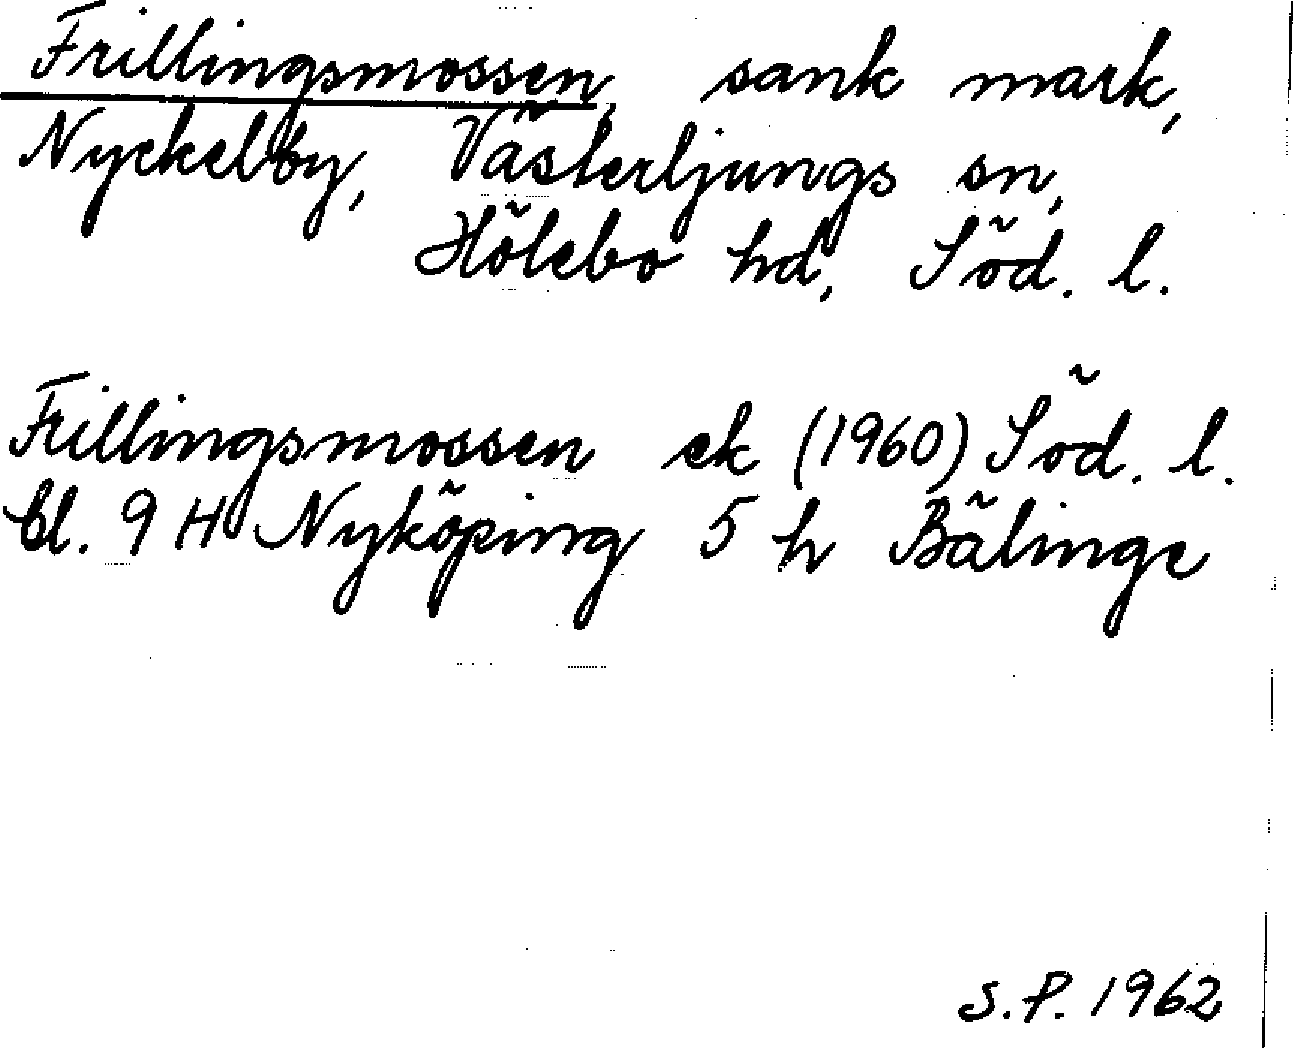 Frillingsmossen, sank mark,
Nyckelby, Västerljungs sn,
Hölebo hd, Söd. l.
Frillingsmossen ek (1960) Söd. l.
bl. 9 H Nyköping 5 h Bälinge
S.P. 1962